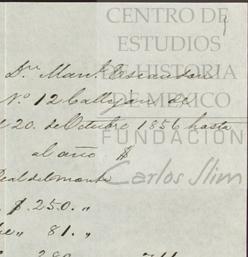 CENTRO DE
ESTUDIOS
DE HISTORIA
DE MEXICO
Dn. Manl. Escandon
No. 12 Callejon de
20. de Octubre 1856 hasta
al año $
Real del monte
$ 250. "
" 81. "
FUNDACIÓN
Carlos Slim